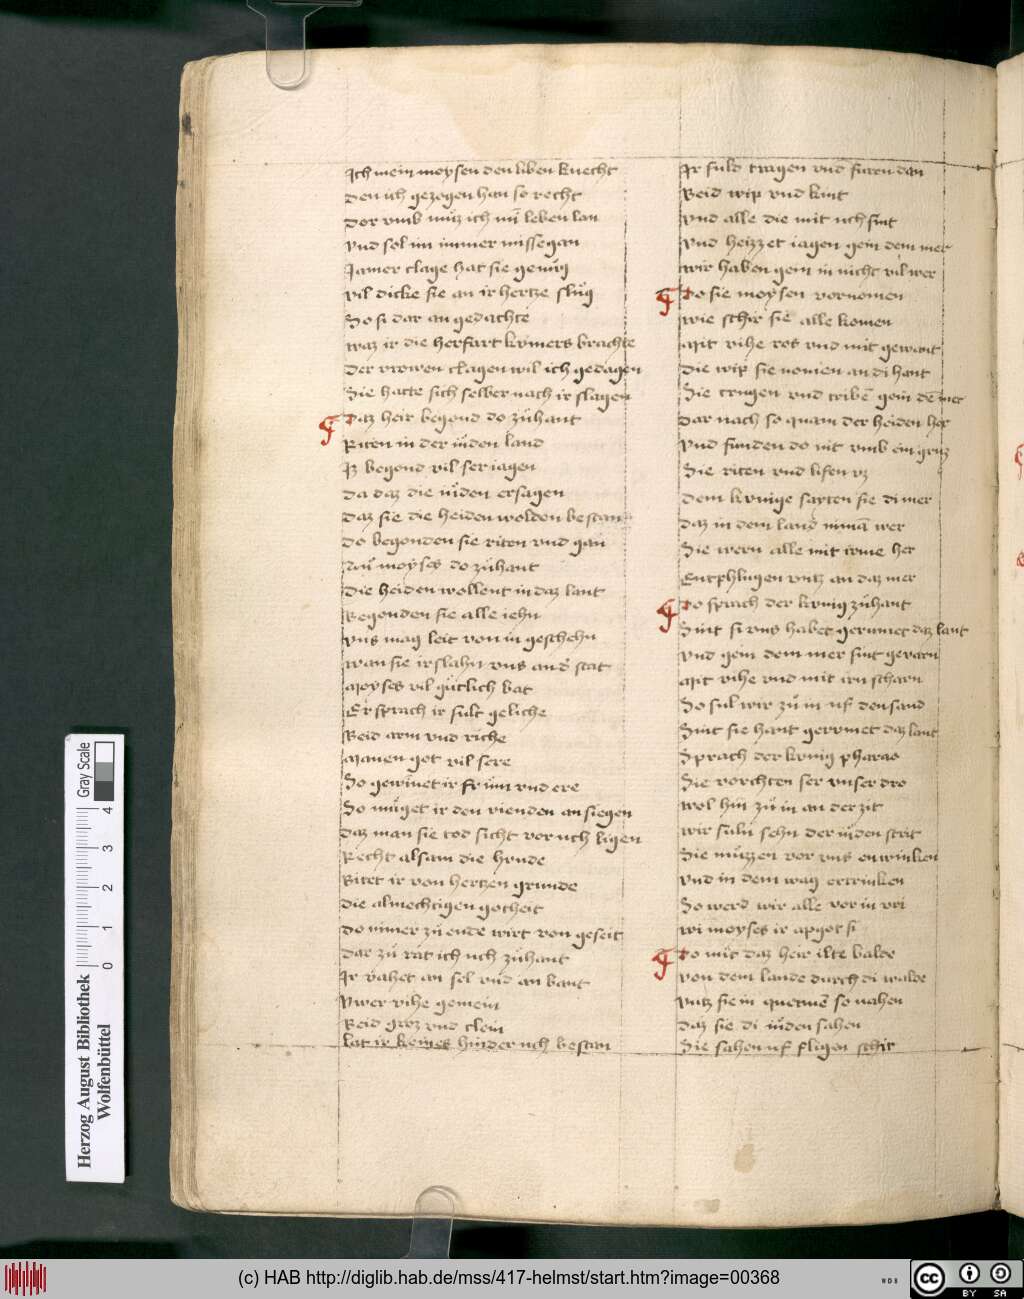 Ich mein moysen den liben knecht
Den ich gezogen han so recht
Dor vmb muͦz ich mī leben lan
Vnd sol im immer missegan
Jamer clage hat sie genuͦg
Vil dicke sie an ir hertze sluͦg
So si dar an gedachte
Waz ir die herfart kvmers brachte
Der vrowen clagen wil ich gedagen
Sie hatte sich selber nach ir slagen
Daz heir begond do zuͦhant
Riten in der iuden land
Iz begond vil ser iagen
Da daz die iuden ersagen
Daz sie die heiden wolden bestan
Do begonden sie riten vnd gan
moyses do zuͦhant
Die heiden wollent in daz lant
Begonden sie alle iehn
Vns mag leit von in geschehn
Wan sie irslahn vns an dˢ stat
Moyses vil guͤtlich bat
Er sprach ir sult geliche
Beid arm vnd riche
Manen got vil sere
So gewinet ir frum vnd ere
So muͦget ir den vienden an siegen
Daz man sie tod sicht vor uch ligen
Recht alsam die hunde
Bitet ir von hertzen grunde
Die almechtigen gotheit
Do nimer zu ende wirt von geseit
Dar zuͦ rat ich uch zuͦhant
Ir vahet an sel vnd an bant
Vwer vihe gemein
Beid groz vnd clein
Lat ir keines hinder uch bestan
Ir suld tragen vnd furen dan
Beid wip vnd kint
Vnd alle die mit uch sint
Vnd heizzet iagen gein dem mer
Wir haben gein in nicht vil wer
Do sie moysen vornomen
Wie schir sie alle komen
Mit vihe ros vnd mit gewant
Die wip sie nomen an di hant
Sie trugen vnd tribē gein dē mer
Dar nach so quam der heiden her
Vnd funden do nit vmb ein gruz
Sie riten vnd lifen vz
Dem kvnige sayten sie di mer
Daz in dem land nimā wer
Sie wern alle mit irme her
Entphlugen vntz an daz mer
Do sprach der kvnig zuͦhant
Sint si vns habet gerumet daz lant
Vnd gein dem mer sint gevarn
Mit vihe vnd mit irn scharn
So sul wir zuͦ in uf den sand
Sint sie hant gervmet daz lant
Sprach der kvnig pharao
Sie vorchten ser vnser dro
Wol hin zuͦ in an der zit
Wir suln sehn der iuden strit
Sie muͦzzen vor vns entwinken
Vnd in dem wag ertrinken
So werd wir alle vor in vri
Wi moyses ir apgot si
Do mit daz heir ilte balde
Von dem lande durch di walde
Vntz sie in quemē so nahen
Daz sie di iuden sahen
Sie sahen uf fligen schir
Herzog August Bibliothek
Wolfenbüttel
0 1 2 3 4
Gray Scale
(c) HAB http://diglib.hab.de/mss/417-helmst/start.htm?image=00368
WDB
cc BY SA